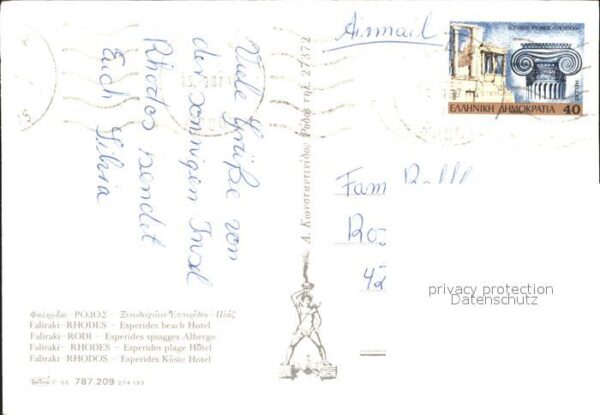 Airmail
ΕΛΛΗΝΙΚΗ ΔΗΜΟΚΡΑΤΙΑ 40
Viele Grüße von
der sonnigen Insel
Rhodos sendet
Euch Silvia
Α. Κωνσταντινίδου Ρόδος τηλ. 27372
Fam
Ro
42
privacy protection
Datenschutz
Φαληράκι - ΡΟΔΟΣ - Ξενοδοχεῖον Ἑσπερίδες - Πλάζ
Faliraki - RHODES - Esperides beach Hotel
Faliraki - RODI - Esperides spiagges Albergo
Faliraki - RHODES - Esperides plage Hôtel
Faliraki - RHODOS - Esperides Küste Hotel
C 55 787.209 274 133